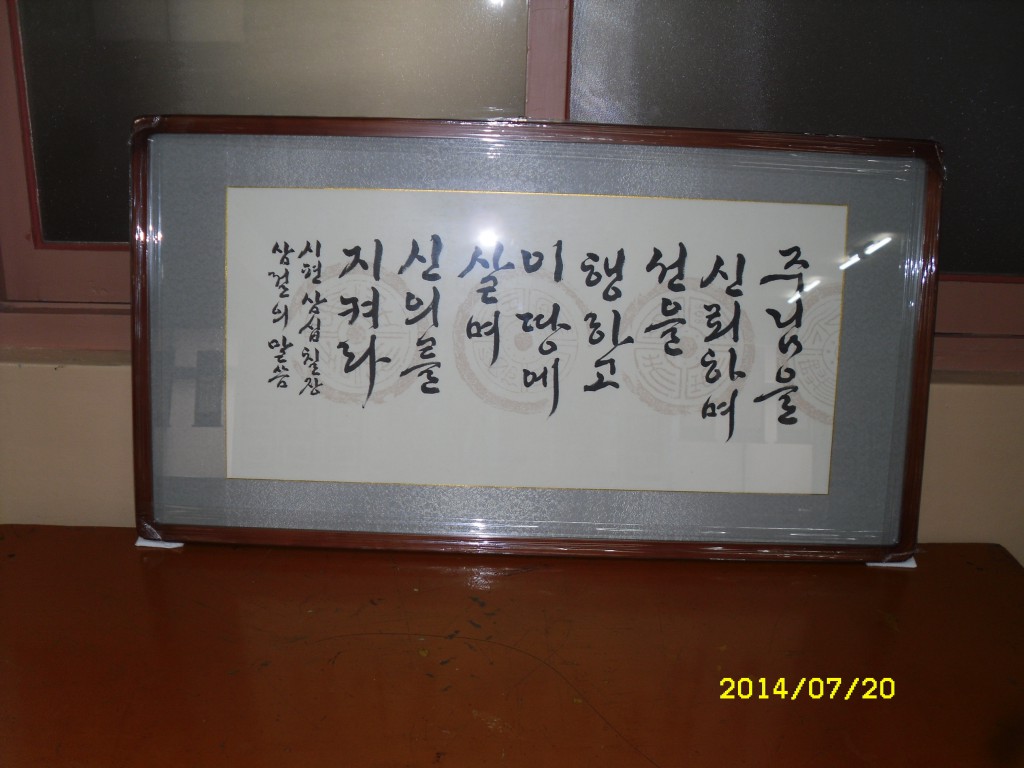 주님을
신뢰하며
선을
행하고
이 땅에
살며
신의를
지켜라
시편 삼십칠장
삼절의 말씀
2014/07/20